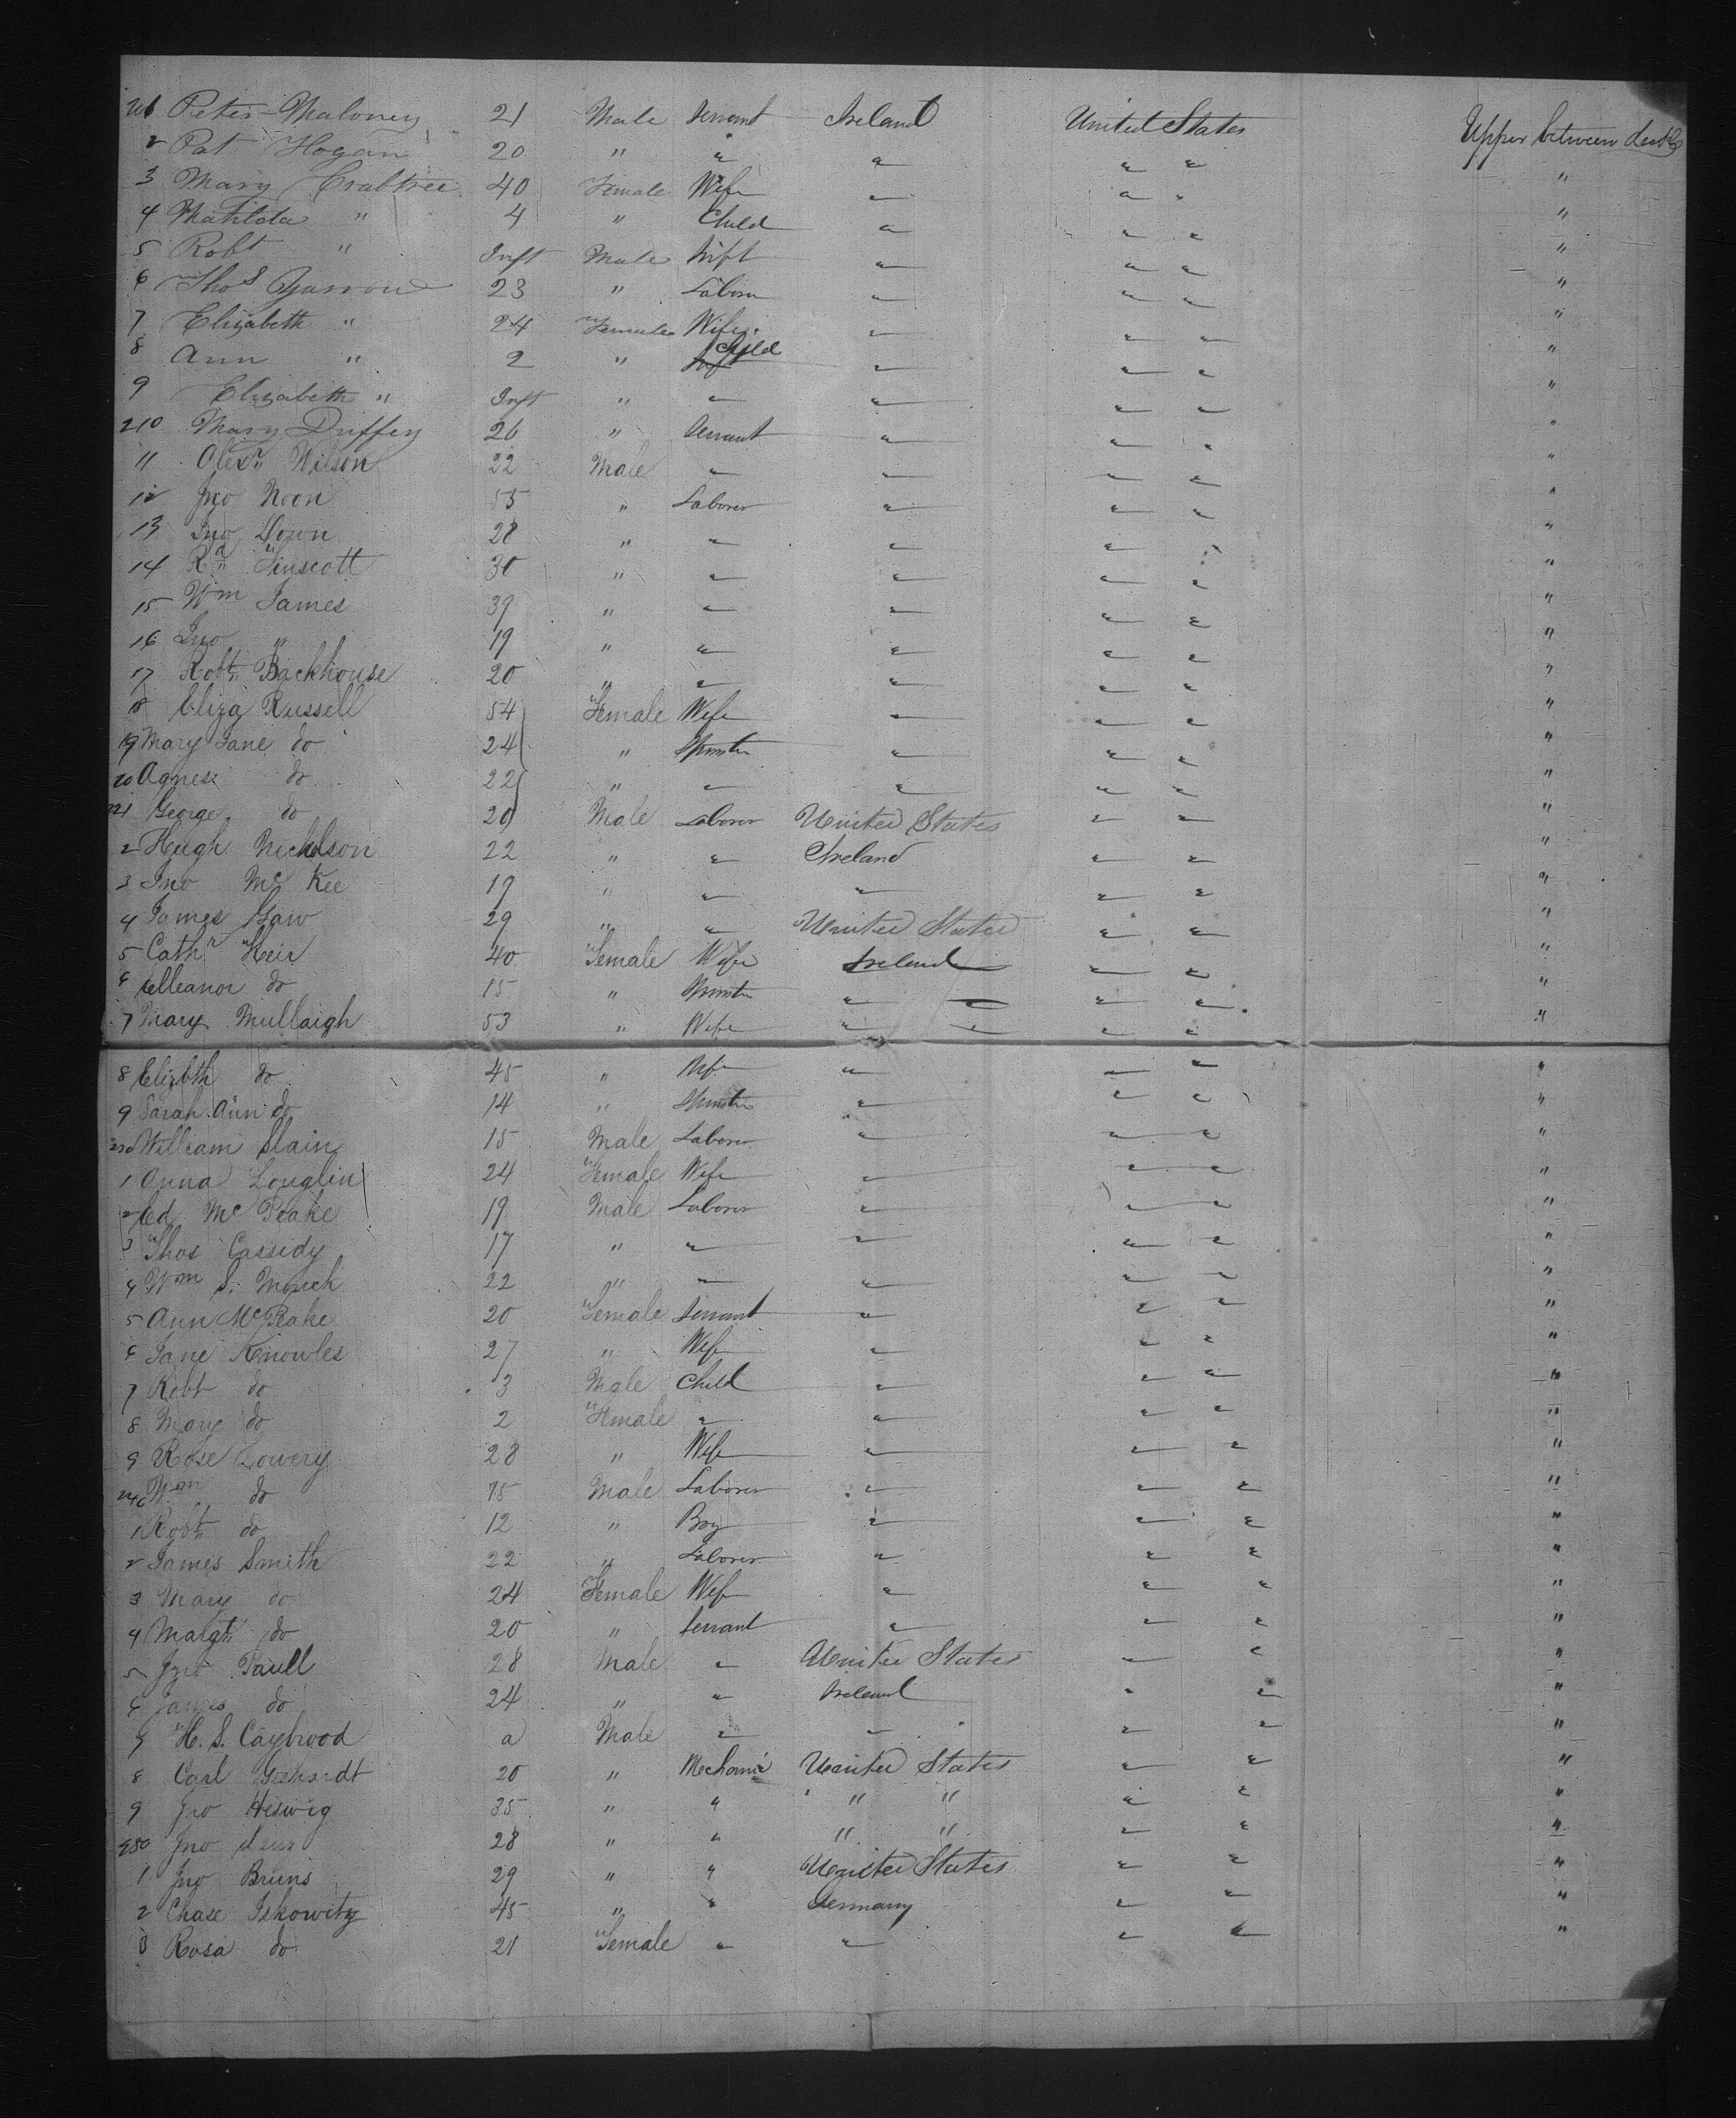 Peter Maloney 21 Male Servant Ireland United States Upper between decks
2 Pat Hogan 20 " " " " " "
3 Mary Crabtree 40 Female Wife " " " "
4 Matilda " 4 " Child " " " "
5 Robt " Inft Male Inft " " " "
6 Thos 23 " Labore " " " "
7 Elizabeth " 24 Female Wife " " " "
8 Ann " 2 " Child " " " "
9 Elizabeth " Inft " " " " " "
210 Mary Duffey 26 " Servant " " " "
11 Alexr Wilson 22 Male " " " " "
12 Jno Noon 55 " Laborer " " " "
13 Jno Down 28 " " " " " "
14 Rd Linscott 30 " " " " " "
15 Wm James 39 " " " " " "
16 Jno " 19 " " " " " "
17 Robt Backhouse 20 " " " " " "
18 Eliza Russell 54 Female Wife " " " "
19 Mary Jane do 24 " Spinster " " " "
20 Agnes do 22 " " " " " "
221 George do 20 Male Laborer United States " " "
2 Hugh Nicholson 22 " " Ireland " " "
3 Jno Mc Kee 19 " " " " " "
4 James Gaw 29 " " United States " " "
5 Cathr Keir 40 Female Wife Ireland " " "
6 Elleanor do 15 " Spinster " " " "
7 Mary Mullaigh 53 " Wife " " " "
8 Elizbth do 45 " Wife " " " "
9 Sarah Ann do 14 " Spinster " " " "
230 William Slain 15 Male Laborer " " " "
1 Anna Louglin 24 Female Wife " " " "
2 Ed Mc Peake 19 Male Laborer " " " "
3 Thos Cassidy 17 " " " " " "
4 Wm S. 22 " " " " " "
5 Ann McPeake 20 Female Servant " " " "
6 Jane Knowles 27 " Wife " " " "
7 Robt do 3 Male Child " " " "
8 Mary do 2 Female " " " " "
9 Rose Lowery 28 " Wife " " " "
240 Wm do 15 Male Laborer " " " "
1 Robt do 12 " Boy " " " "
2 James Smith 22 " Laborer " " " "
3 Mary do 24 Female Wife " " " "
4 Margt do 20 " Servant " " " "
5 Jno Paull 28 Male " United States " " "
6 James do 24 " " Ireland " " "
7 H. S. Caybrood a Male " " " " "
8 Carl 20 " Mechanic United States " " "
9 Jno Heswig 35 " " " " " " "
250 Jno 28 " " " " " " "
1 Jno Bruns 29 " " United States " " "
2 Chase Iskowitz 45 " " Germany " " "
3 Rosa do 21 Female " " " " "